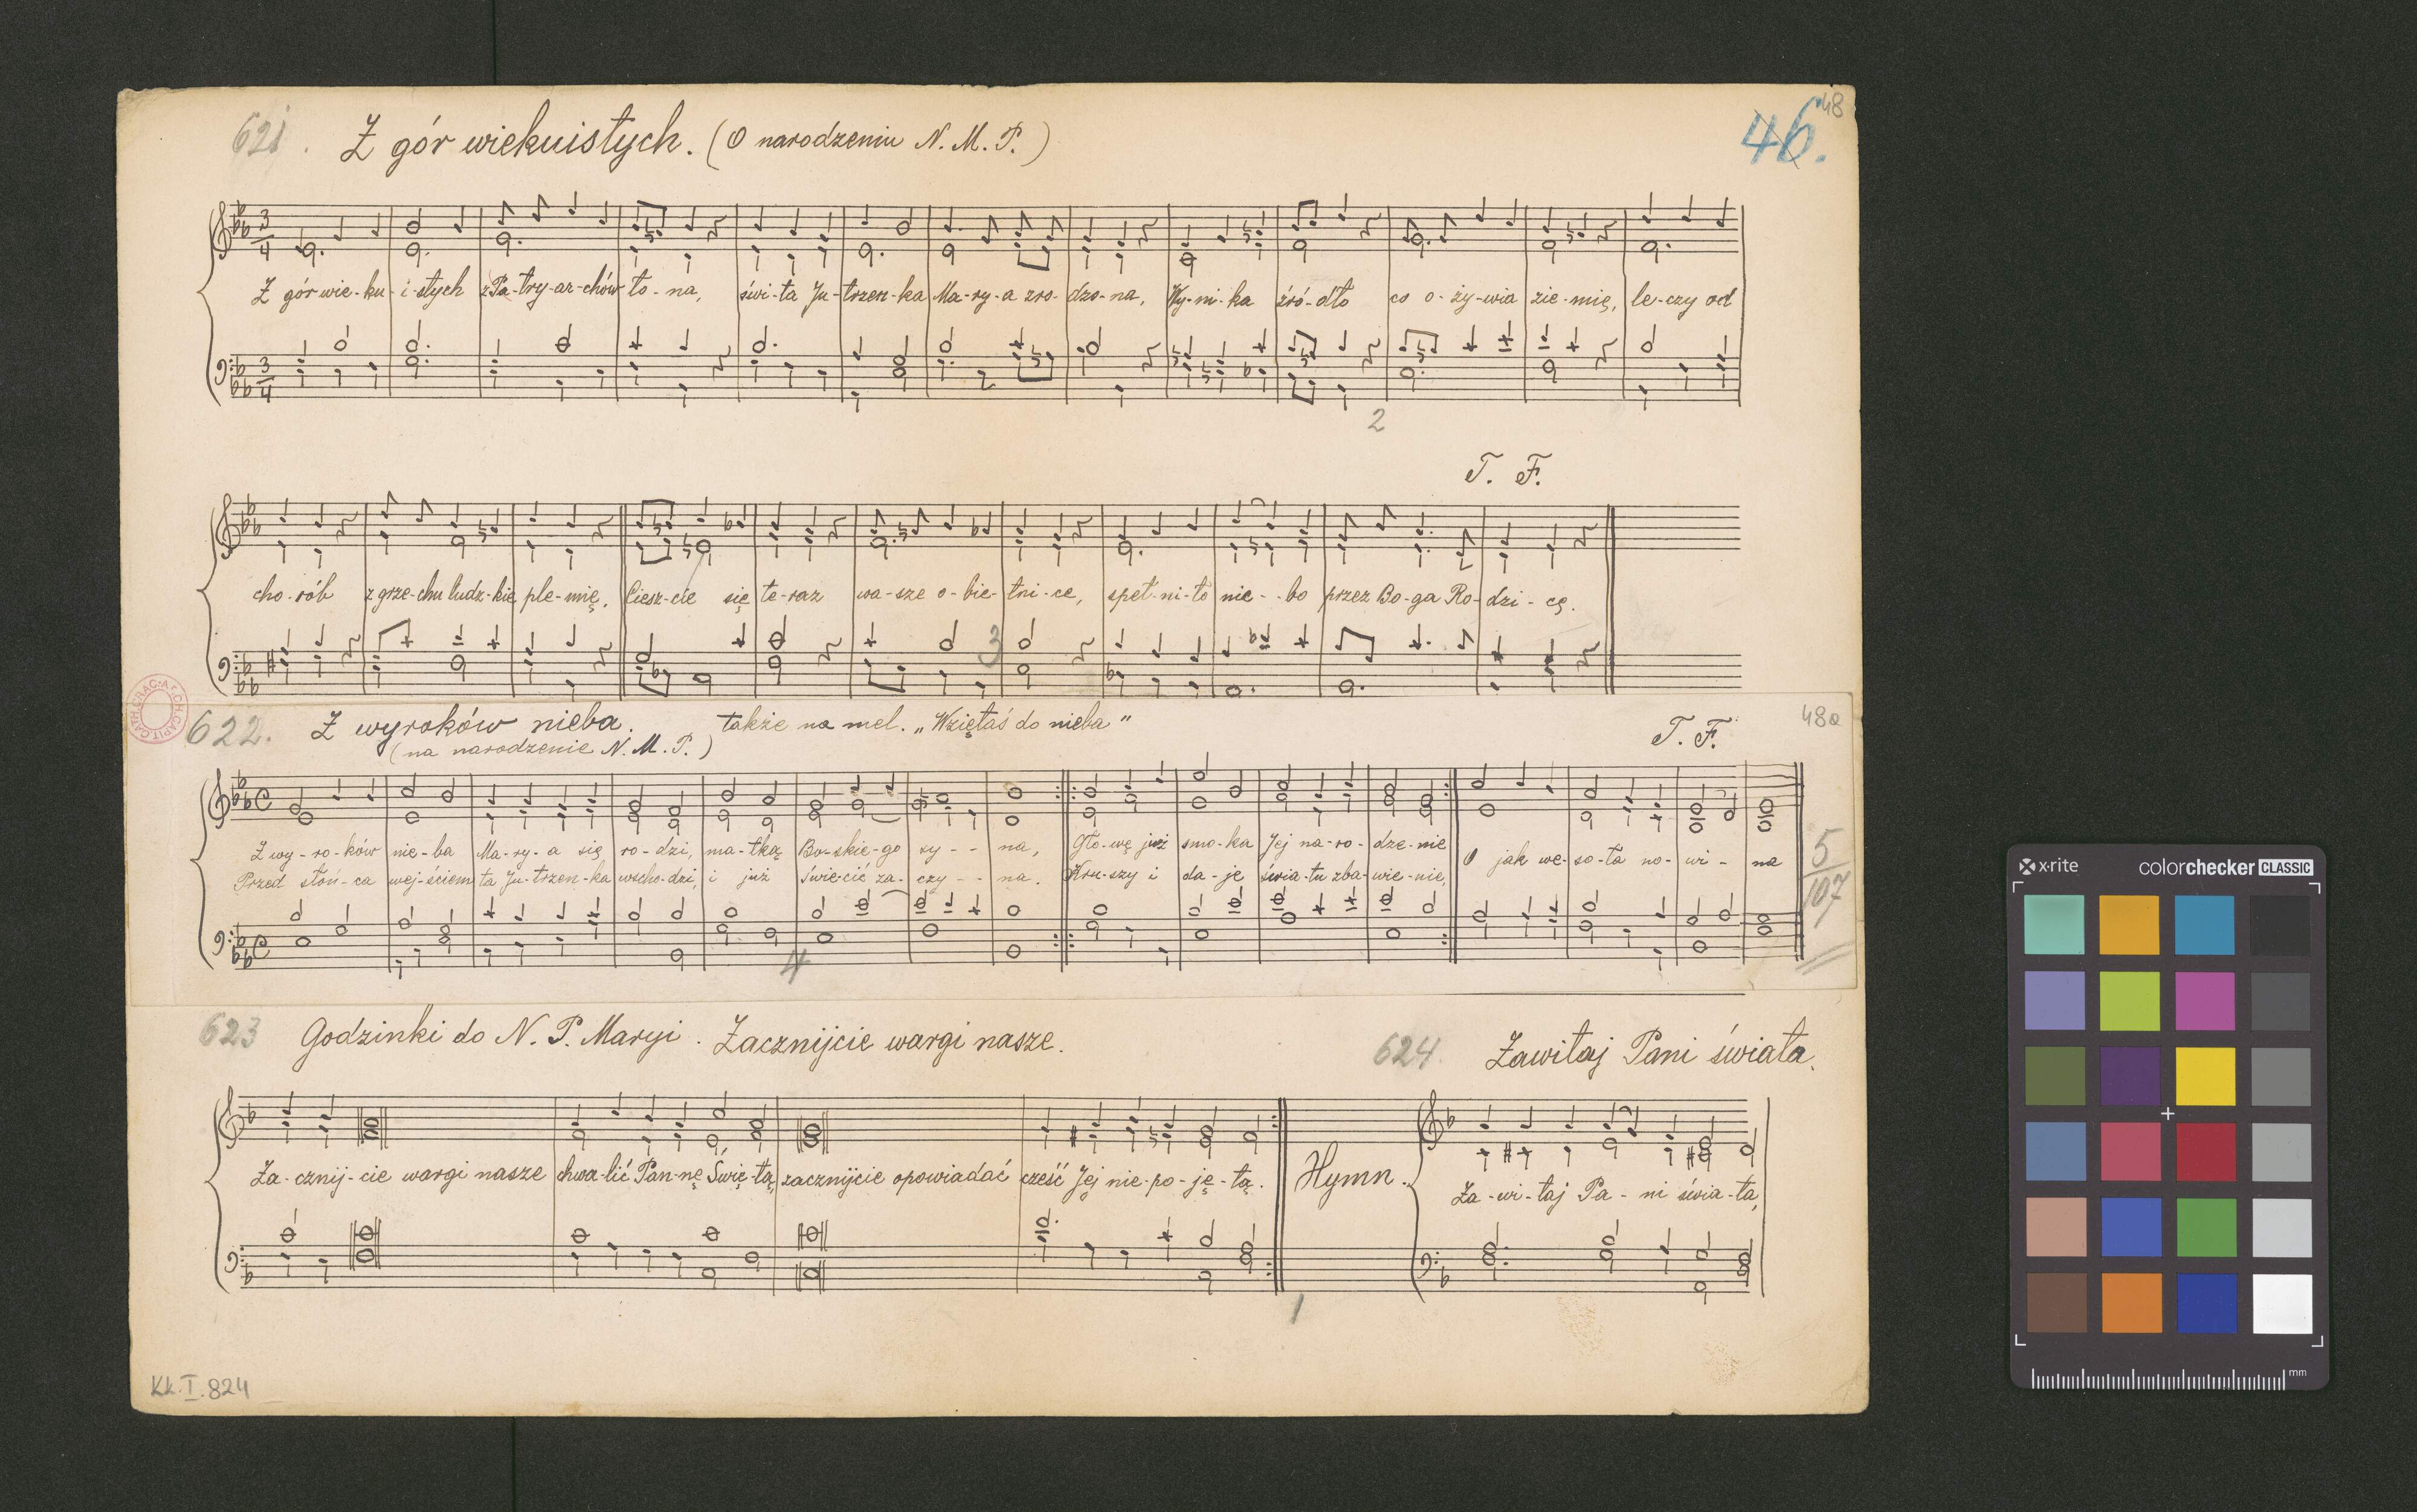 48
46.
621. Z gór wiekuistych. (O narodzeniu N. M. P.)
3/4
Z gór wie-ku-i-stych z Pa-try-ar-chów ło-na, świ-ta Ju-trzen-ka Ma-ry-a zro-dzo-na, Wy-ni-ka źró-dło co o-ży-wia zie-mię, le-czy od
3/4
2
T. F.
cho-rób z grze-chu ludz-kie ple-mię, Ciesz-cie się te-raz wa-sze o-bie-tni-ce, speł-ni-ło nie--bo przez Bo-ga Ro-dzi-cę.
3
622. Z wyroków nieba. także na mel. „Wzięłaś do nieba”
(na narodzenie N. M. P.)
T. F.
48a
Z wy-ro-ków nie-ba Ma-ry-a się ro-dzi, ma-tką Bo-skie-go sy-- na, Gło-wę już smo-ka Jej na-ro-dze-nie O jak we-so-ła no-wi-na
Przed słoń-ca wej-ściem ta Ju-trzen-ka wscho-dzi, i już świe-cić za-czy-- na. Kru-szy i da-je świa-tu zba-wie-nie,
5/107
4
623 Godzinki do N. P. Maryi. Zacznijcie wargi nasze.
624. Zawitaj Pani świata.
Za-cznij-cie wargi nasze chwa-lić Pan-nę Świę-tą, zacznijcie opowiadać cześć Jej nie-po-ję-tą.
Hymn.
Za-wi-taj Pa-ni świa-ta,
1
KK.I.824
x-rite colorchecker CLASSIC
mm